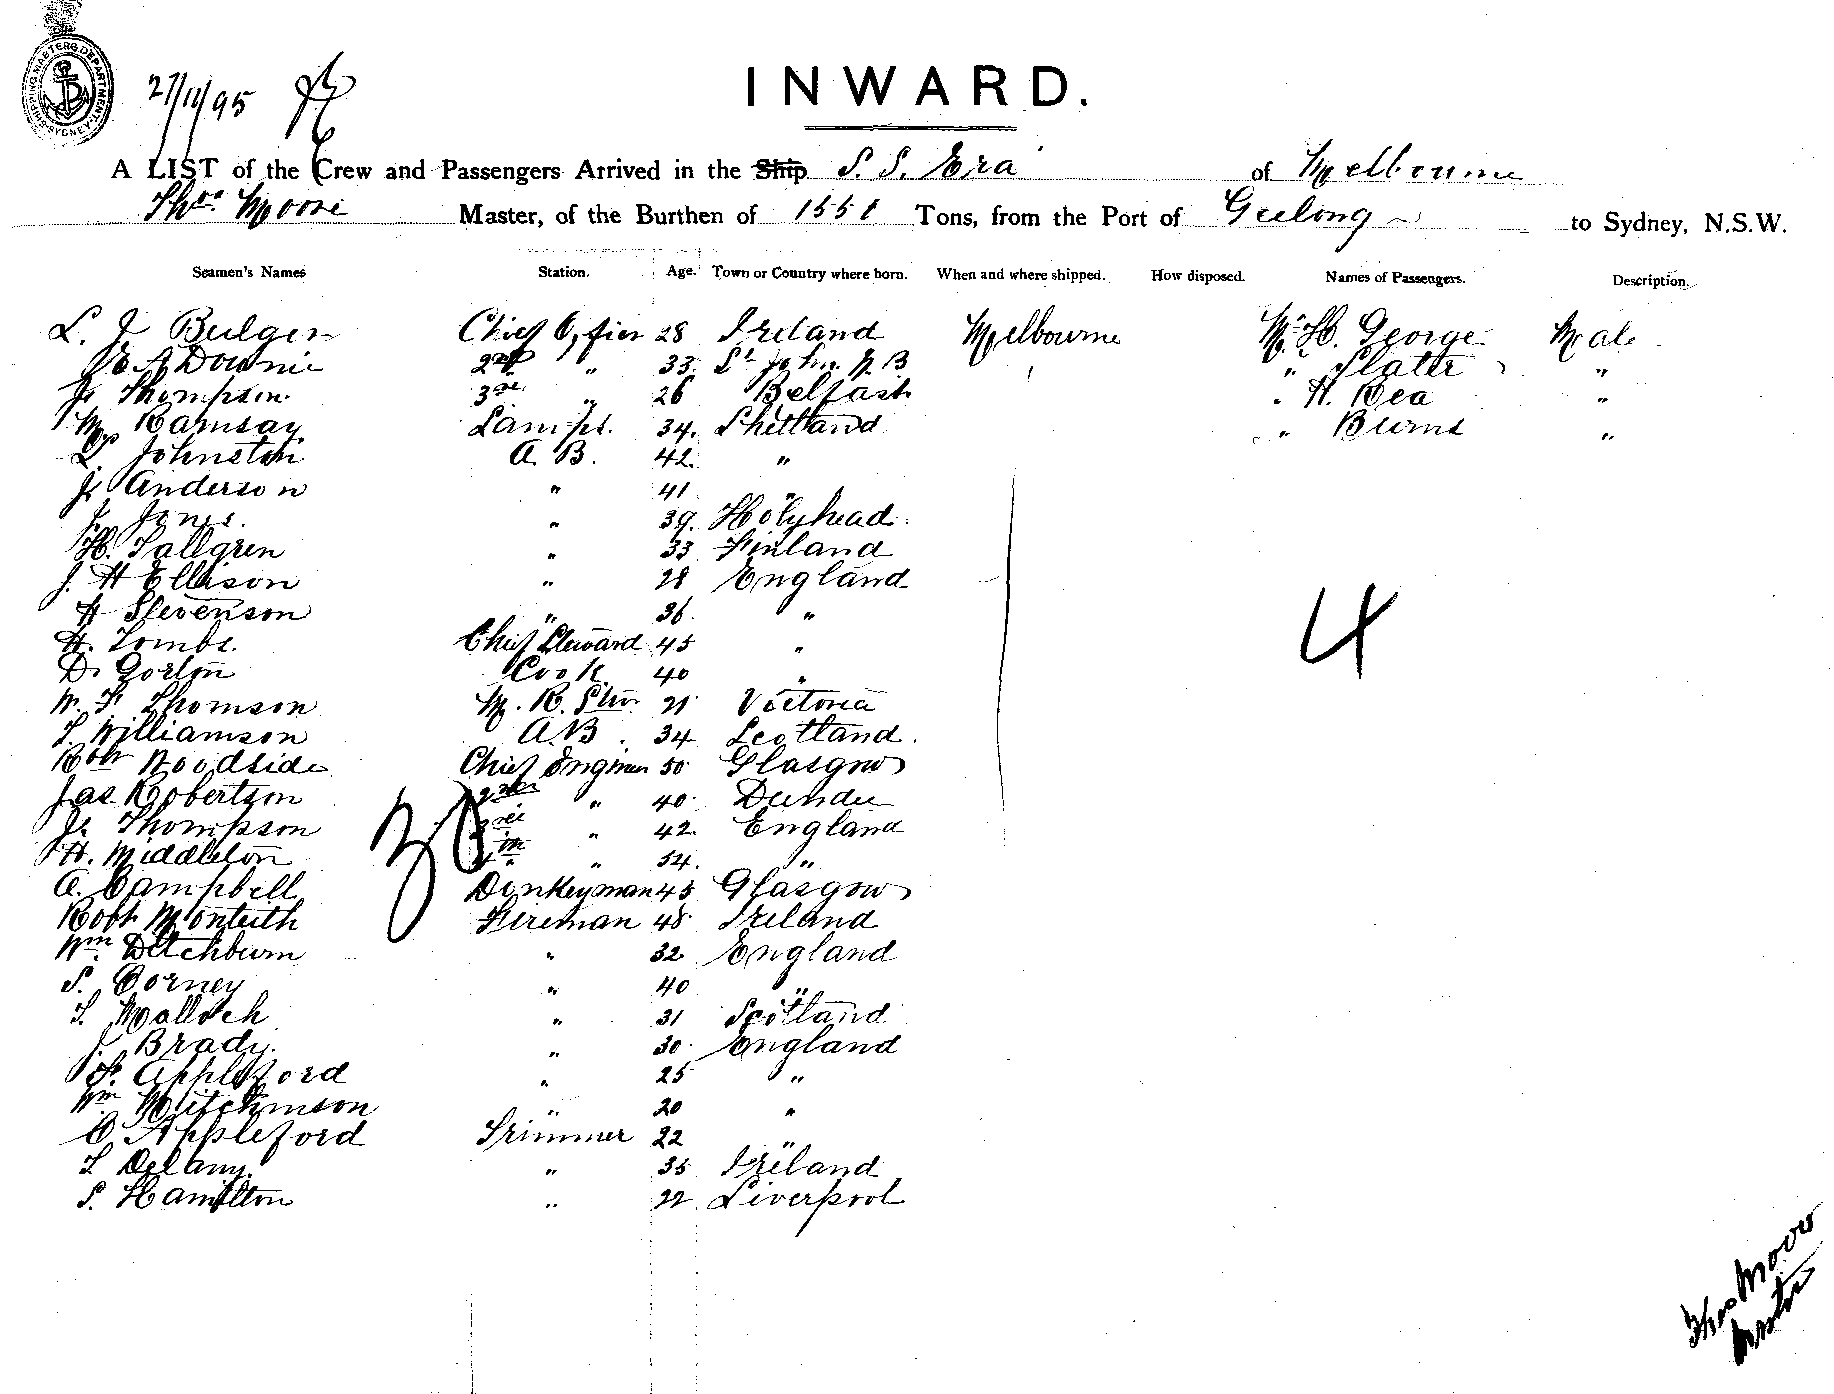 SHIPPING MASTERS DEPARTMENT SYDNEY
27/11/95
INWARD.
A LIST of the Crew and Passengers Arrived in the Ship S. S. Era of Melbourne
Thos Moore Master, of the Burthen of 1551 Tons, from the Port of Geelong to Sydney, N.S.W.
Seamen's Names Station. Age. Town or Country where born. When and where shipped. How disposed. Names of Passengers. Description.
L. J Bulger Chief Officer 28 Ireland Melbourne Mr. H. George Male
Downie 2nd " 33 St John N B " Slater "
Js Thompson 3rd " 26 Belfast " H. Rea "
Ramsay Lamps. 34. Shetland " Burns "
Johnston A. B. 42. "
Js Anderson " 41 "
J. Jones. " 39. Holyhead.
H. Tallgren " 33 Finland
J. H Ellison " 28 England
H Stevenson " 36. "
H. Tombs. Chief Steward 45 "
D. Gorton Cook 40 "
W. F Thomson M. R. Stwd. 21 Victoria
T. Williamson A.B. 34 Scotland.
Robt Woodside Chief Engineer 50 Glasgow
Jas Robertson 2nd " 40 Dundee
Js Thompson 3rd " 42. England
H. Middleton 4th " 54. "
A. Campbell Donkeyman 45 Glasgow
Robt Monteith Fireman 48 Ireland
Wm. Ditchburn " 32 England
S. Corney " 40 "
T. Malloch " 31 Scotland
J. Brady. " 30 England
Appleford " 25 "
Wm Hutchinson " 20 "
C. Appleford Trimmer 22 "
T Delany. " 35 Ireland
S. Hamilton " 22 Liverpool
30
4
Thos Moore
Master